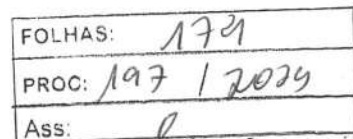 FOLHAS: 174
PROC: 197 / 2024
Ass: